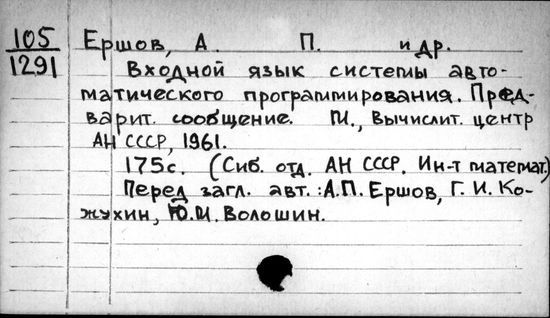 105
1291
Ершов, А. П. и др.
Входной язык системы авто-
матического программирования. Пред-
варит. сообщение. М., Вычислит. центр
АН СССР, 1961.
175с. (Сиб. отд. АН СССР. Ин-т математ.)
Перед загл. авт.: А.П. Ершов, Г. И. Ко-
жухин, Ю.М. Волошин.